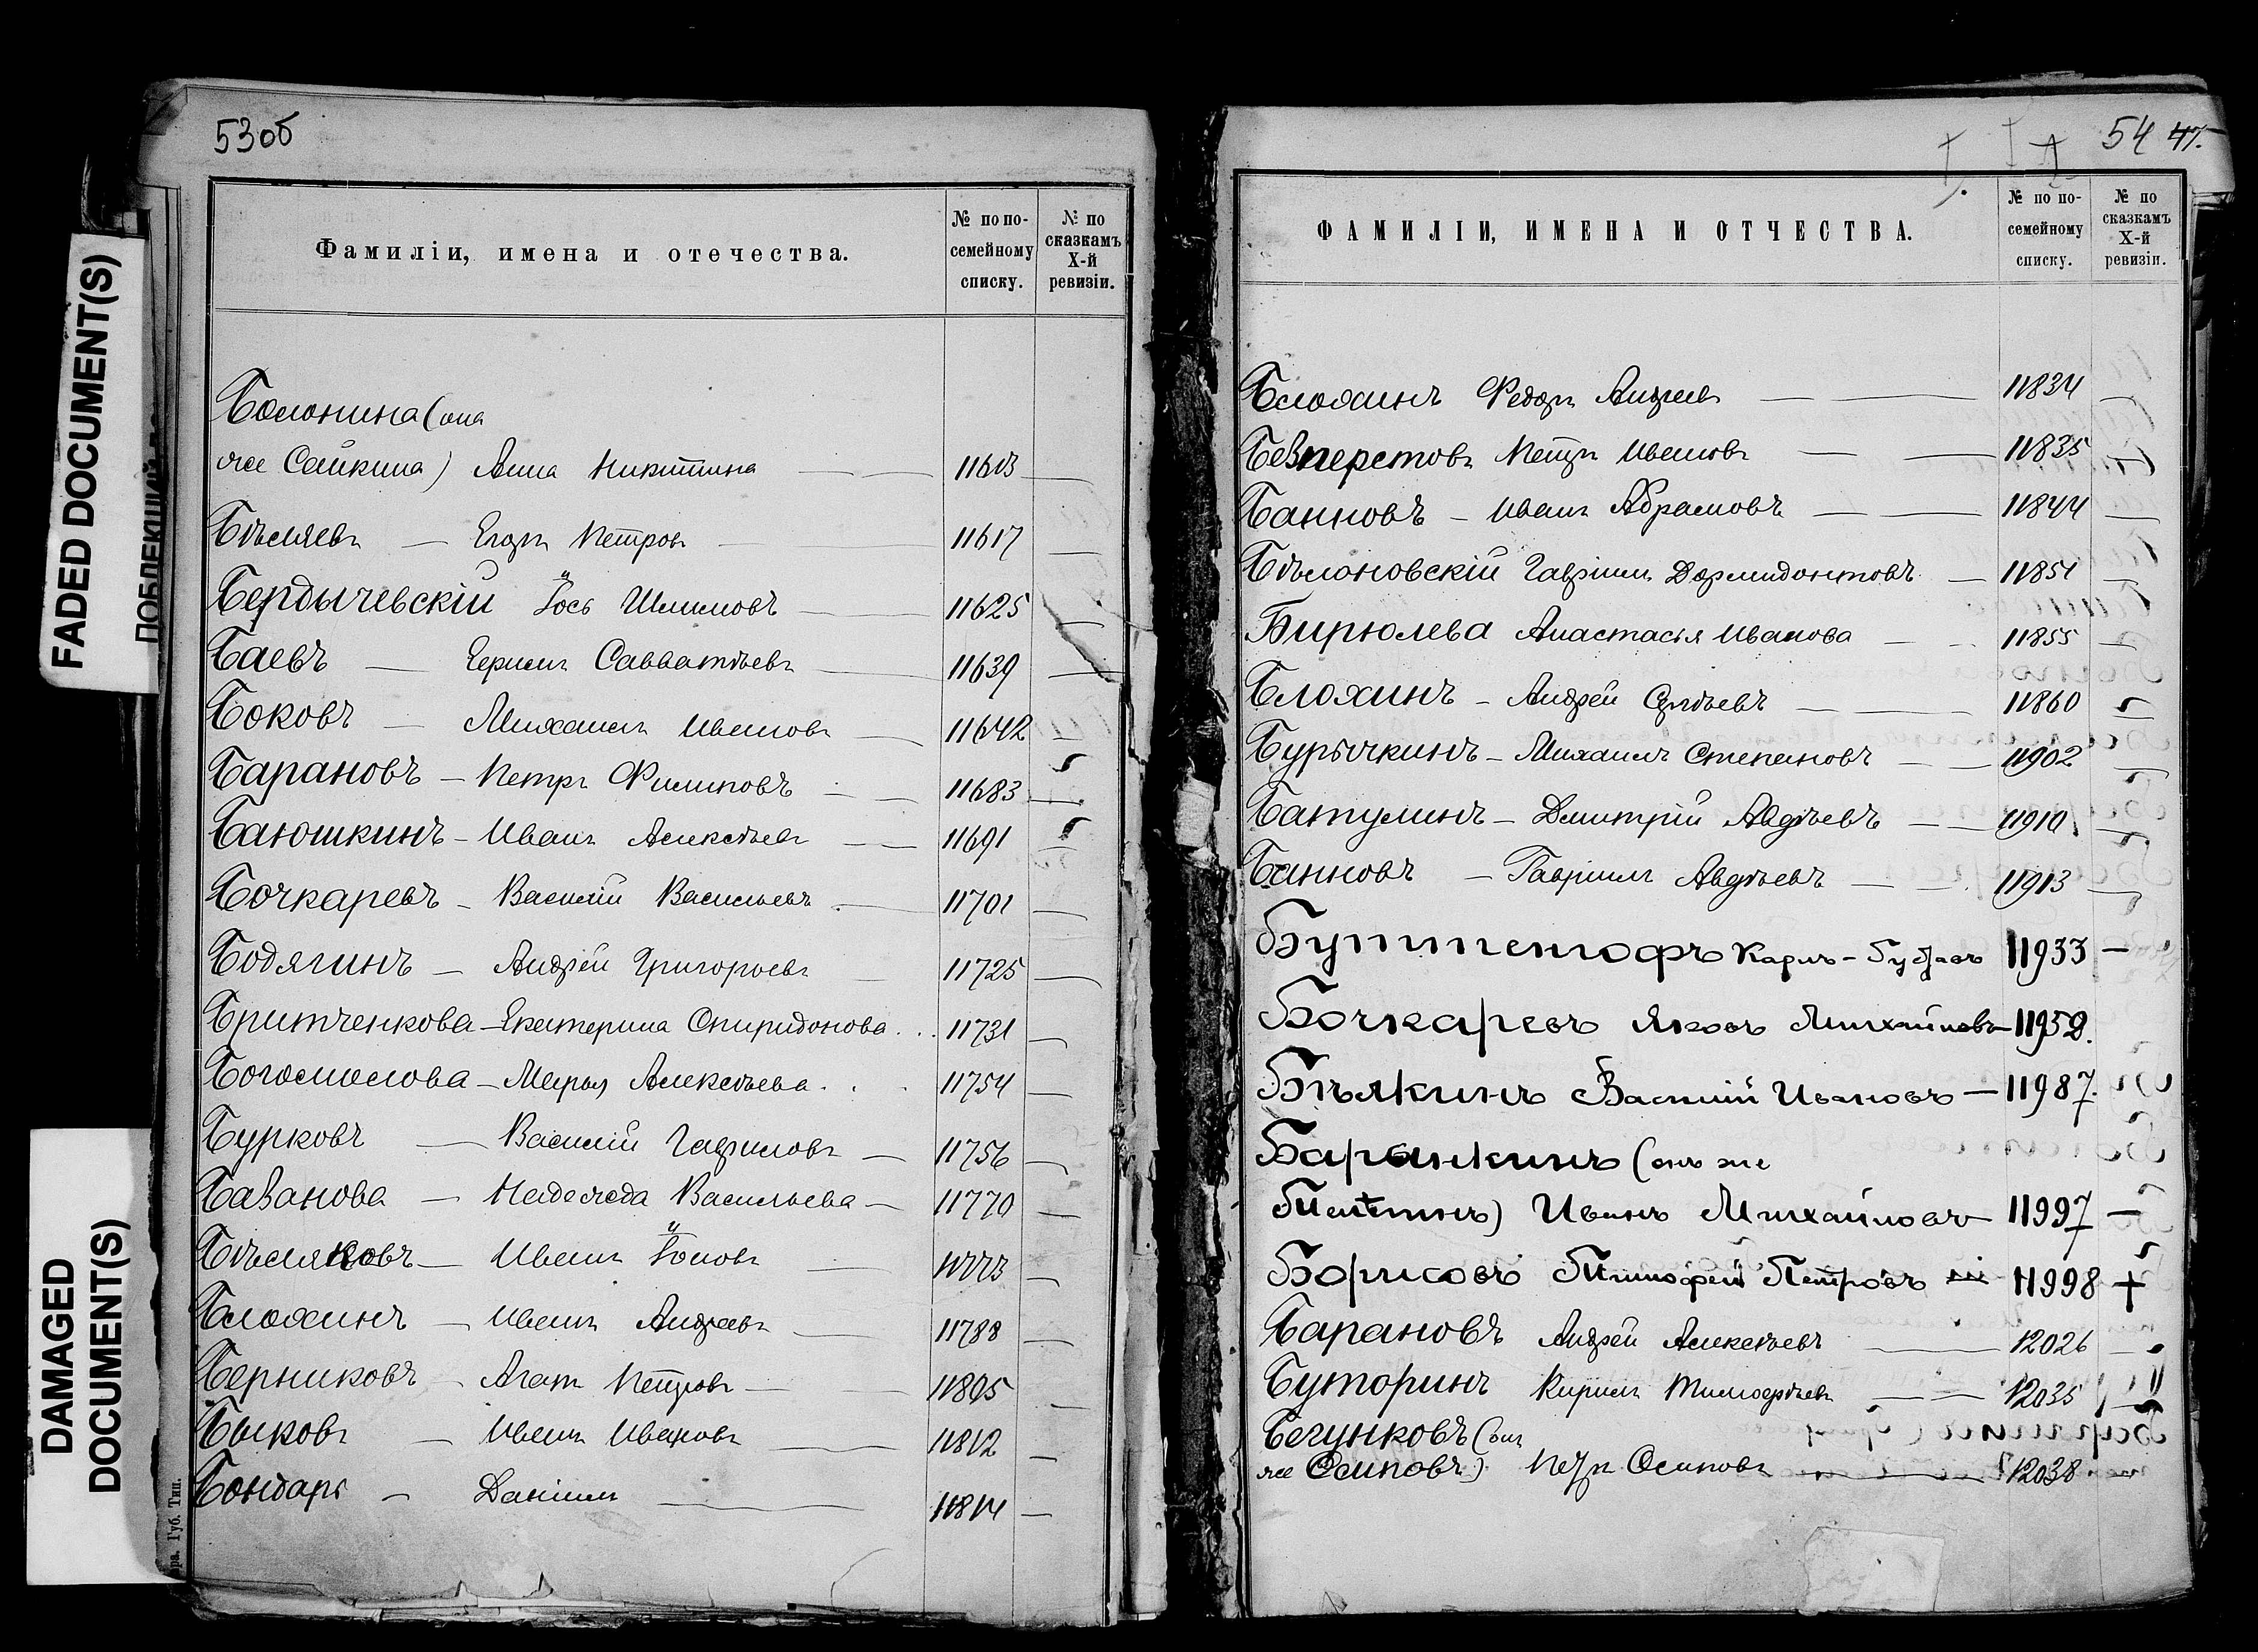 53об
Фамиліи, имена и отечества.
№ по по-семейному списку.
№ по сказкамъ X-й ревизіи.
Болонина (она
же Сайкина) Анна Никитина — 11613 —
Бѣляевъ — Егоръ Петровъ — 11617 —
Бердычевскій Іось Шлимовъ — 11625 —
Баевъ — Герисимъ Савватѣевъ — 11639 —
Боковъ — Михаилъ Ивановъ — 11642 —
Барановъ — Петръ Филиповъ — 11683 —
Баюшкинъ — Иванъ Алексѣевъ — 11691 —
Бочкаревъ — Василій Васильевъ — 11701 —
Бодягинъ — Андрей Григорьевъ — 11725 —
Бритченкова — Екатерина Спиридонова . . 11731 —
Богомолова — Марья Алексѣева . . 11754 —
Бурковъ — Василій Гавриловъ — 11756 —
Базанова — Надежда Васильева — 11770 —
Бѣляковъ — Иванъ —
Блохинъ — Иванъ Андреевъ — 11788 —
Берниковъ — Агат Петровъ — 11805 —
Быковъ — Иванъ Ивановъ — 11812 —
Бондарь — Даніилъ — 11814 —
ра. Губ. Тип.
54 47.
ФАМИЛІИ, ИМЕНА И ОТЧЕСТВА.
№ по по-семейному списку.
№ по сказкамъ X-й ревизіи.
Блохинъ Федоръ Андреев — 11834 —
Безперстовъ Петръ Ивановъ — 11835 —
Банновъ — Иванъ Абрамовъ — 11844 —
Бѣлоновскій Гавріилъ Дормидонтовъ — 11851 —
Бирюлева Анастасья Иванова — 11855 —
Блохинъ — Андрей Сергѣевъ — 11860 —
Бурычкинъ — Михаилъ Степановъ — 11902 —
Батулинъ — Дмитрій Авдѣевъ — 11910 —
Банновъ — Гавріилъ Авдѣевъ — 11913 —
Карлъ-Густавъ 11933 —
Бочкаревъ Яковъ Михайловъ — 11952.
Бѣлкинъ Василій Ивановъ — 11987.
Баранкинъ (онъ же
Иванъ Михайловъ — 11997 —
Борисовъ Тимофей Петровъ 11998 +
Барановъ Андрей Алексѣевъ — 12026 —
Буторинъ Кирилъ Тимофѣевъ — 12035
Бегунковъ (онъ
же Осиповъ) Петръ Осиповъ — 12038 —
FADED DOCUMENT(S)
DAMAGED DOCUMENT(S)